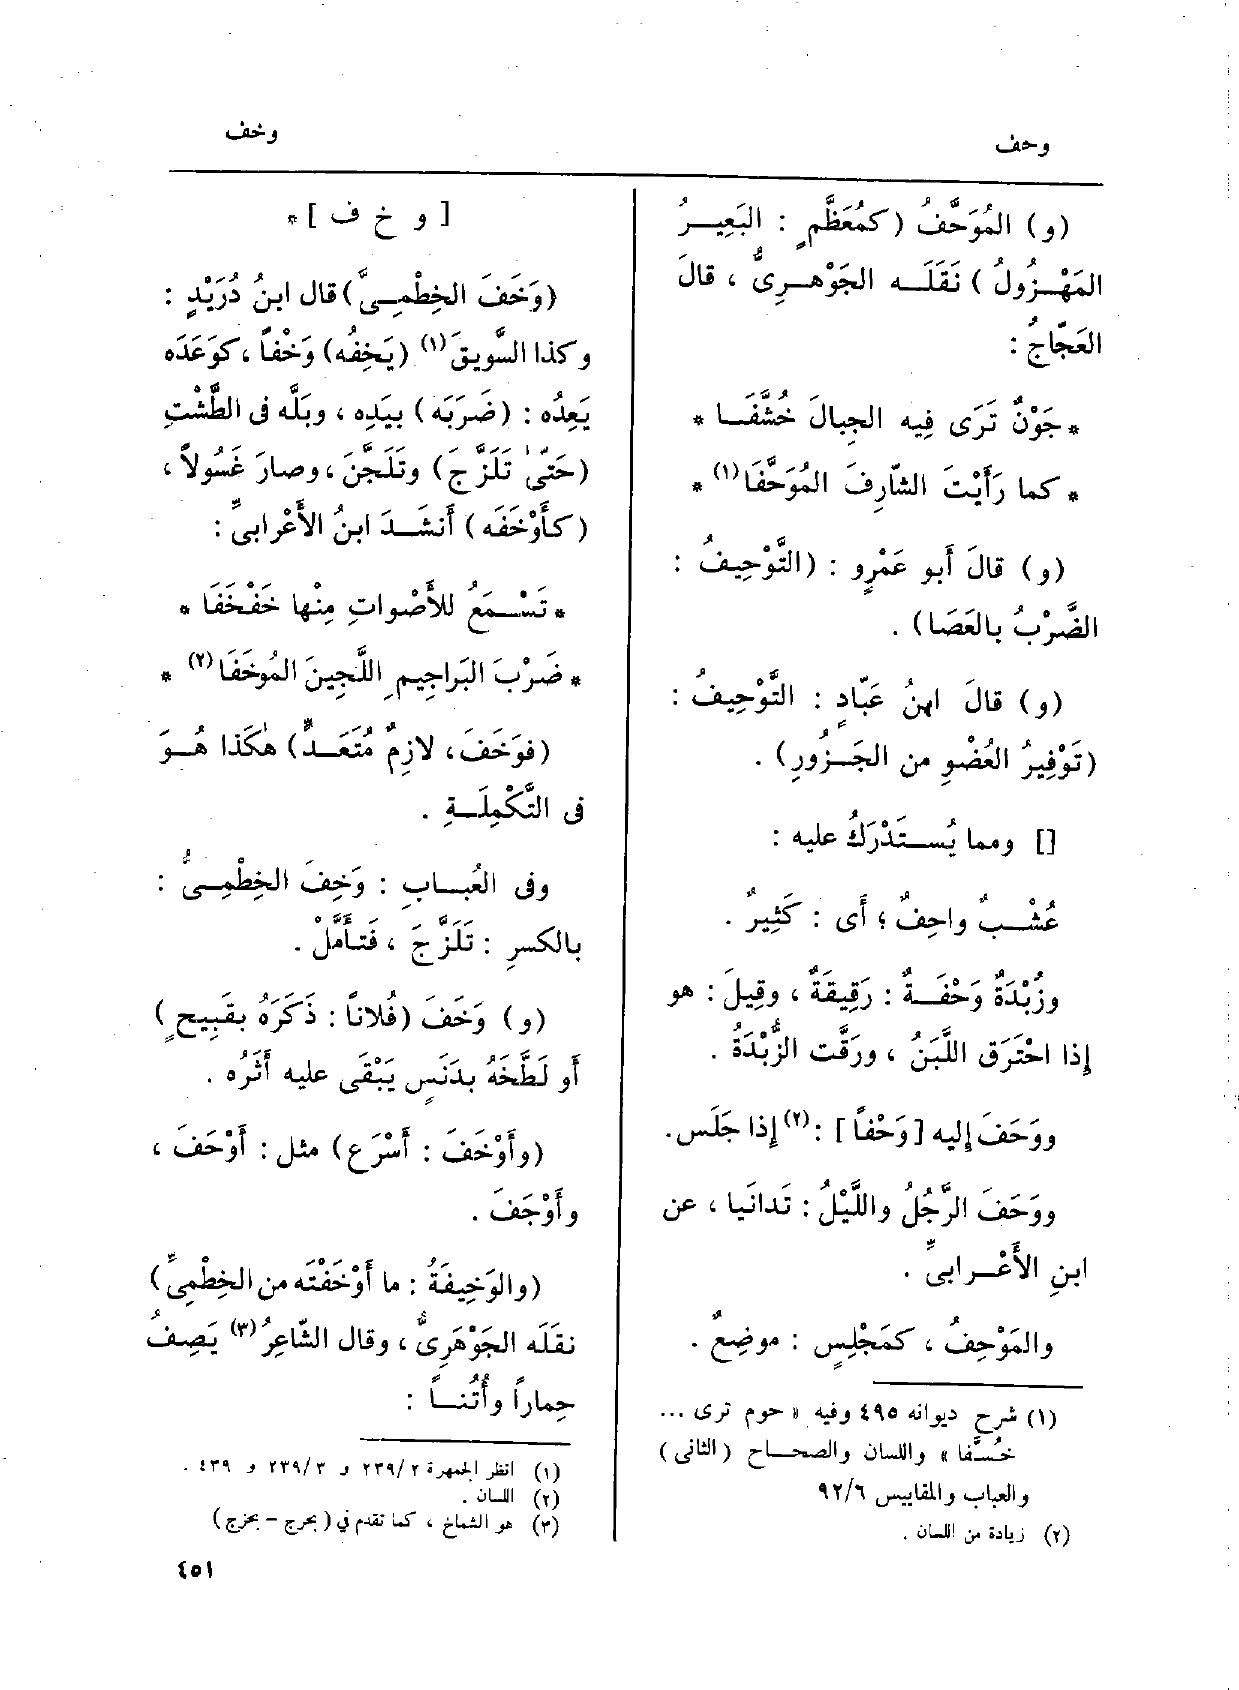 وحف
وخف
(و) المُوَحَّفُ (كمُعَظَّمٍ : البَعِيـرُ
المَهْـزُولُ) نَقَلَـه الجَوْهـرِىُّ ، قالَ
العَجّاجُ:
* جَوْنٌ تَرَى فِيه الجِبالَ خُشَّفَـا *
* كما رَأَيْتَ الشّارِفَ المُوَحَّفَا(١) *
(و) قالَ أَبو عَمْرٍو : (التَّوْحِيفُ :
الضَّرْبُ بالعَصَا) .
(و) قالَ ابنُ عَبّادٍ : التَّوْحِيفُ :
(تَوْفِيرُ العُضْوِ من الجَـزُورِ) .
[] ومما يُسـتَدْرَكُ عليه :
عُشْـبٌ واحِفٌ ؛ أَى : كَثِيرٌ .
وزُبْدَةٌ وَحْفَـةٌ : رَقِيقَةٌ ، وقِيلَ : هو
إذا احْتَرَق اللَّبَنُ ، ورَقَّت الزُّبْدَةُ .
ووَحَفَ إليه [وَحْفاً] :(٢) إذا جَلَس.
ووَحَفَ الرَّجُلُ واللَّيْلُ : تَدانَيا ، عن
ابنِ الأَعْـرابىِّ .
والمَوْحِفُ ، كمَجْلِسٍ : موضِعٌ .
(١) شرح ديوانه ٤٩٥ وفيه « حوم ترى ...
خُسَّفا » واللسان والصحـاح (الثانى)
والعباب والمقاييس ٩٢/٦
(٢) زيادة من اللسان .
[ و خ ف ] *
(وَخَفَ الخِطْمِـىَّ) قال ابنُ دُرَيْدٍ :
وكذا السَّويقَ(١) (يَخِفُه) وَخْفاً ، كوَعَدَه
يَعِدُه : (ضَرَبَه) بيَدِه ، وبَلَّه فى الطَّشْتِ
(حَتّىٰ تَلَزَّجَ) وتَلَجَّنَ ، وصارَ غَسُولاً ،
(كأَوْخَفَه) أَنشَـدَ ابنُ الأَعْرابىِّ :
* تَسْـمَعُ للأَصْواتِ مِنْها خَفْخَفَا *
* ضَرْبَ البَراجِيمِ اللَّجِينَ المُوخَفَا(٢) *
(فوَخَفَ ، لازِمٌ مُتَعَـدٍّ) هٰكَذا هُـوَ
فى التَّكْمِلَـةِ .
وفى العُبـابِ : وَخِفَ الخِطْمِـىُّ :
بالكسرِ : تَلَزَّجَ ، فَتأَمَّلْ .
(و) وَخَفَ (فُلاناً : ذَكَرَهُ بقَبِيحٍ)
أو لَطَّخَهُ بدَنَسٍ يَبْقَى عليه أَثَرُه .
(وأَوْخَفَ : أَسْرَع) مثل : أَوْحَفَ ،
وأَوْجَفَ .
(والوَخِيفَةُ : ما أَوْخَفْتَه من الخِطْمِىِّ)
نقَلَه الجَوْهَرِىُّ ، وقال الشّاعِرُ(٣) يَصِفُ
حِماراً وأُتُنـاً :
(١) انظر الجمهرة ٢٣٩/٢ و ٢٣٩/٣ و ٤٣٩ .
(٢) اللسان .
(٣) هو الشماخ ، كما تقدم في (بحرج – بحزج)
٤٥١